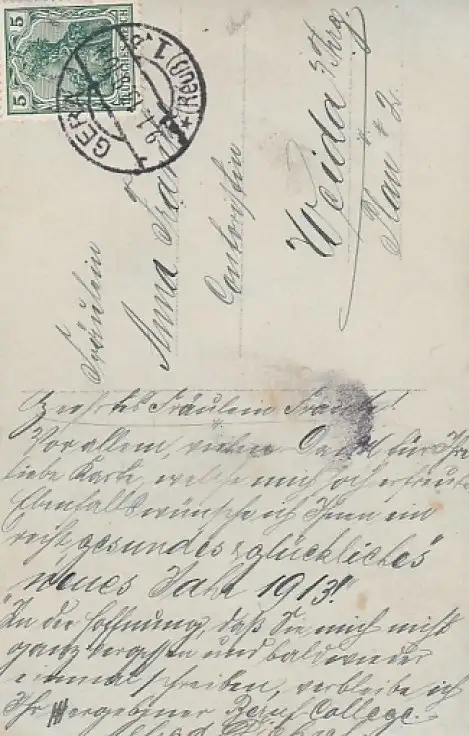 5
5
DEUTSCHES REICH
GERA
(Reuß) 1.
Fräulein
Anna
Contoristin
Weida i/Thrg.
Plan 2
Geehrtes Fräulein Franke!
Vor allem, vielen Dank für Ihre
liebe Karte, welche mich sehr erfreute
Ebenfalls wünsche ich Ihnen ein
recht „gesundes & glückliches"
"neues Jahr 1913!"
In der Hoffnung, daß Sie mich nicht
ganz vergessen und bald wieder
einmal schreiben, verbleibe ich
Ihr ergebener College.